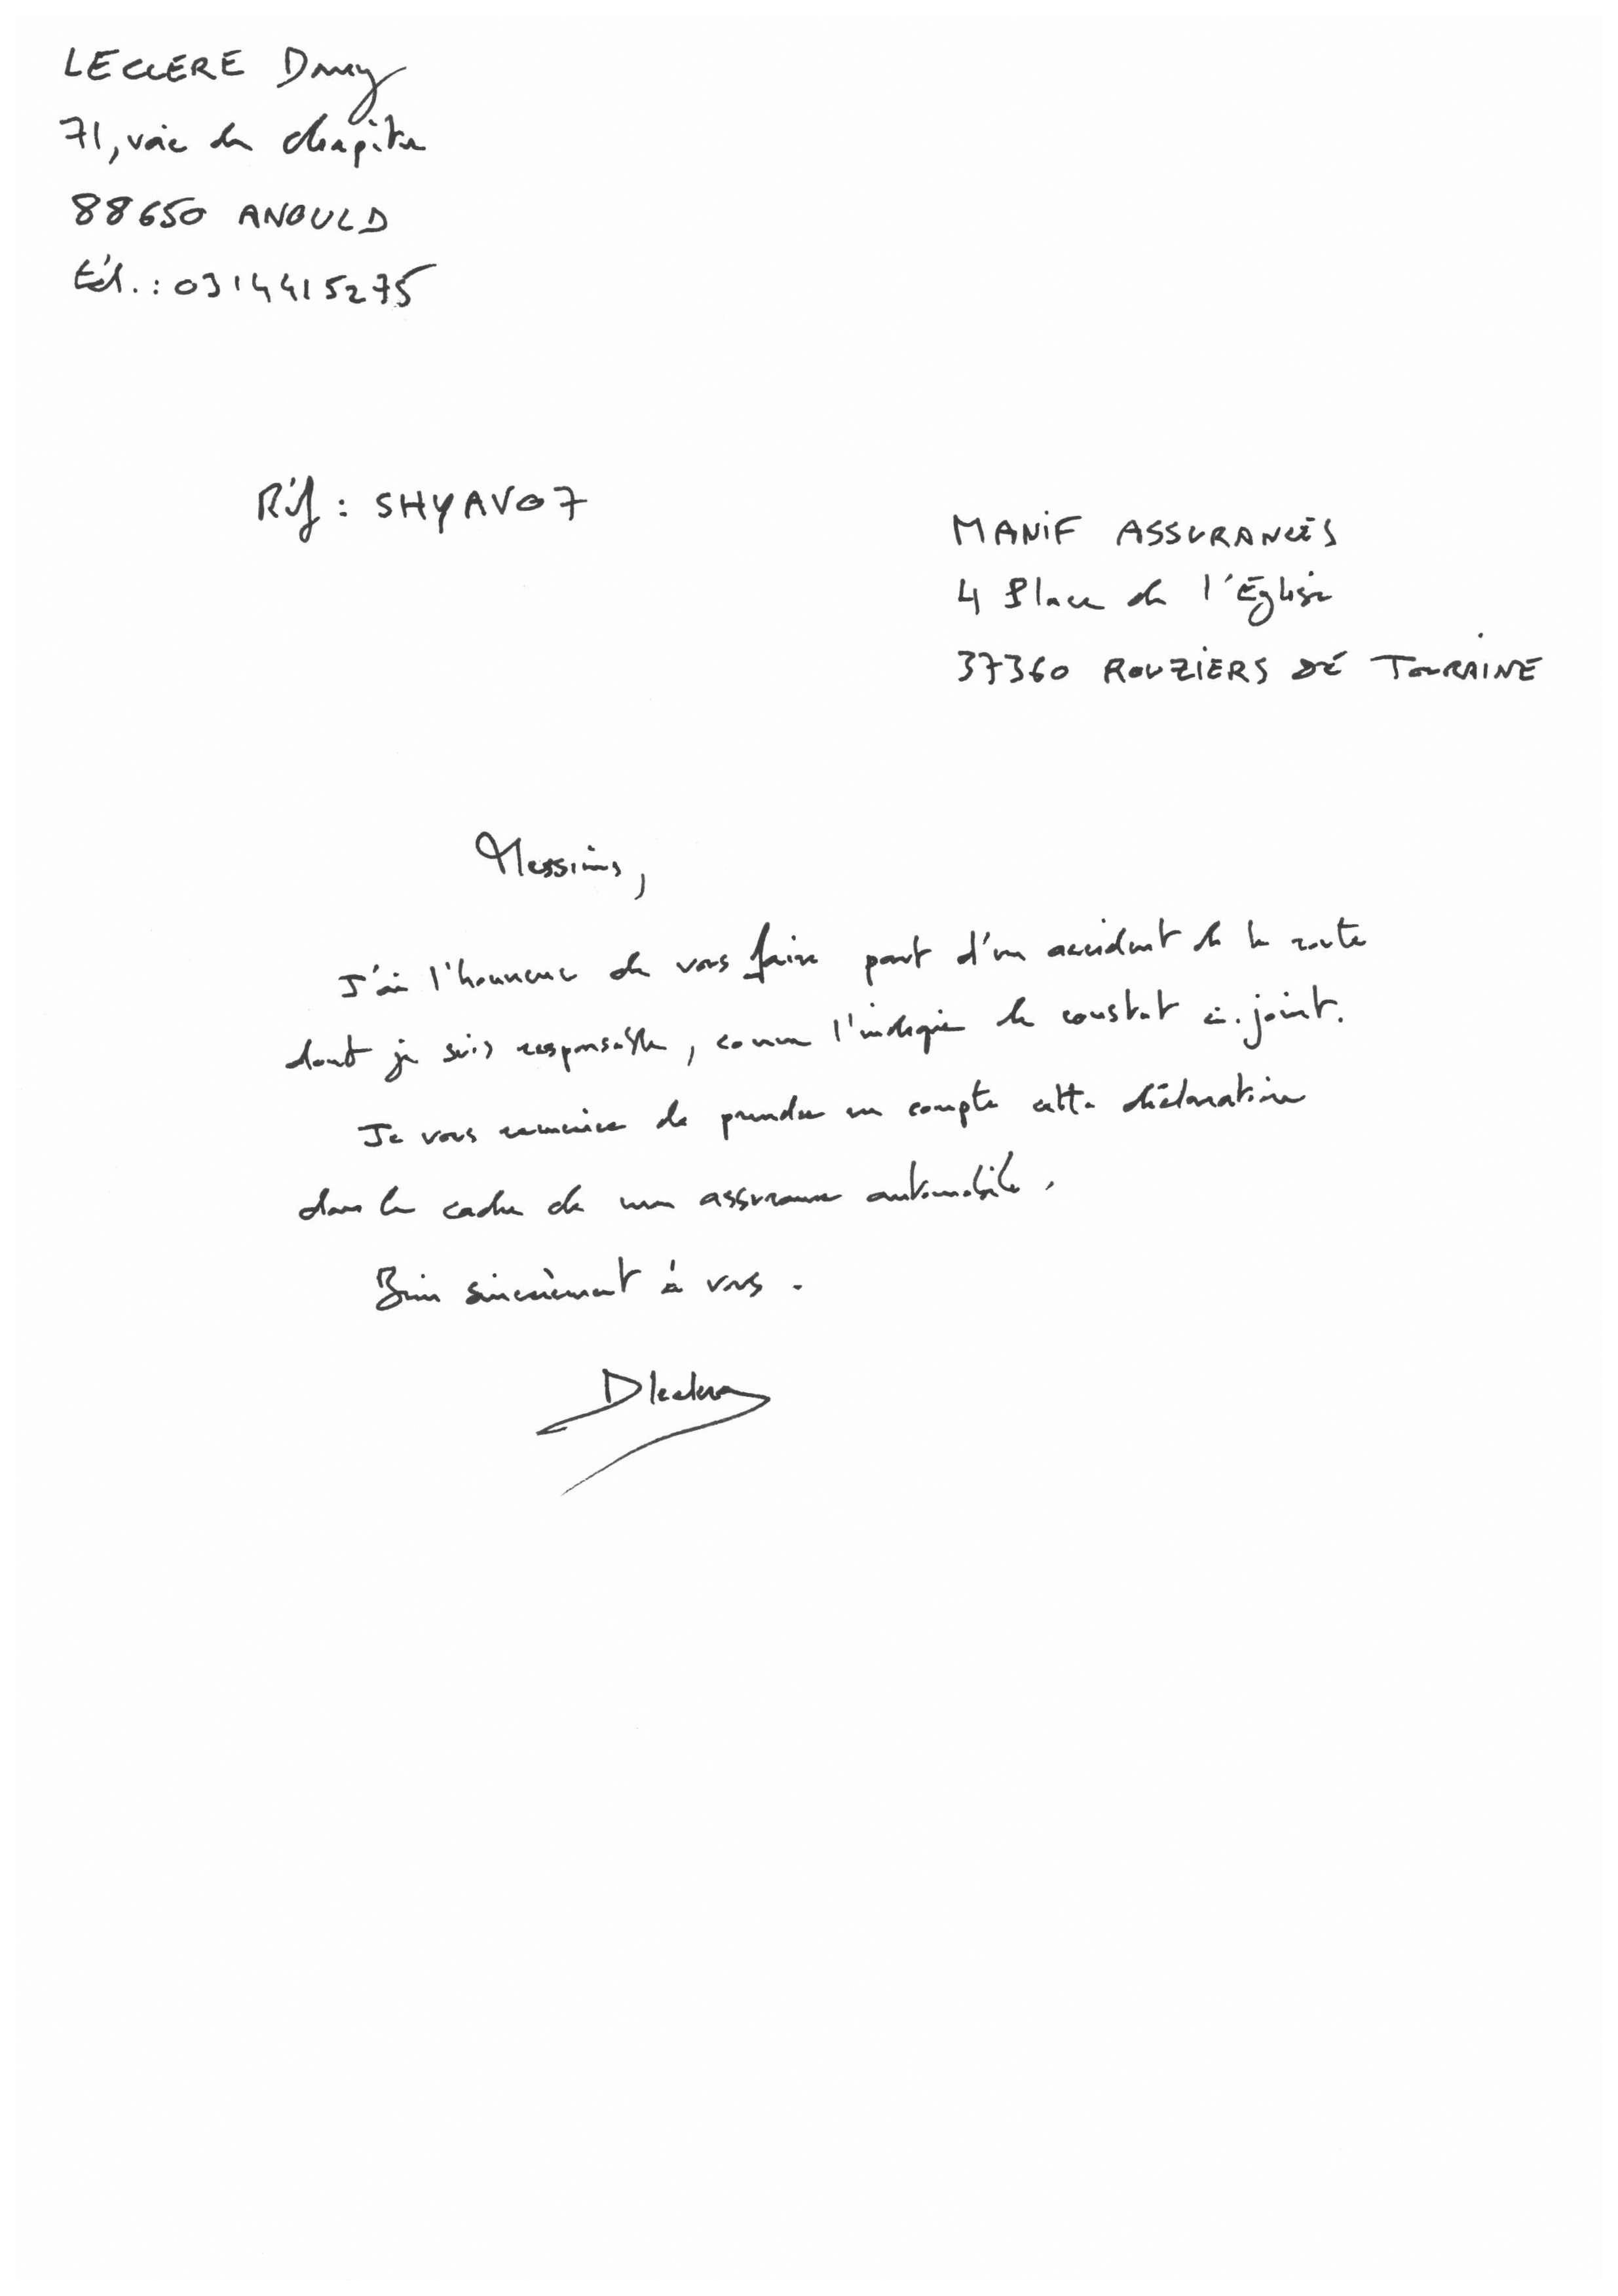 LECLERE Dany
71, voie du chapitre
88650 ANOULD
tél.: 0314415275
Réf : SHYAV07
MANIF ASSURANCES
4 Place de l'Eglise
37360 ROUZIERS DE TOURAINE
Messieurs,
J'ai l'honneur de vous faire part d'un accident de la route
dont je suis responsable, comme l'indique le constat ci-joint.
Je vous remercie de prendre en compte cette déclaration
dans le cadre de mon assurance automobile.
Bien sincèrement à vous.
DLeclere